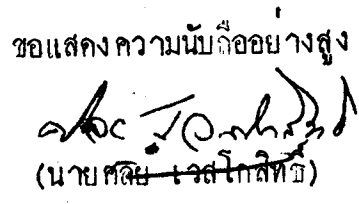 ขอแสดงความนับถืออย่างสูง
(นายศลัย เวสโกสิทธิ์)